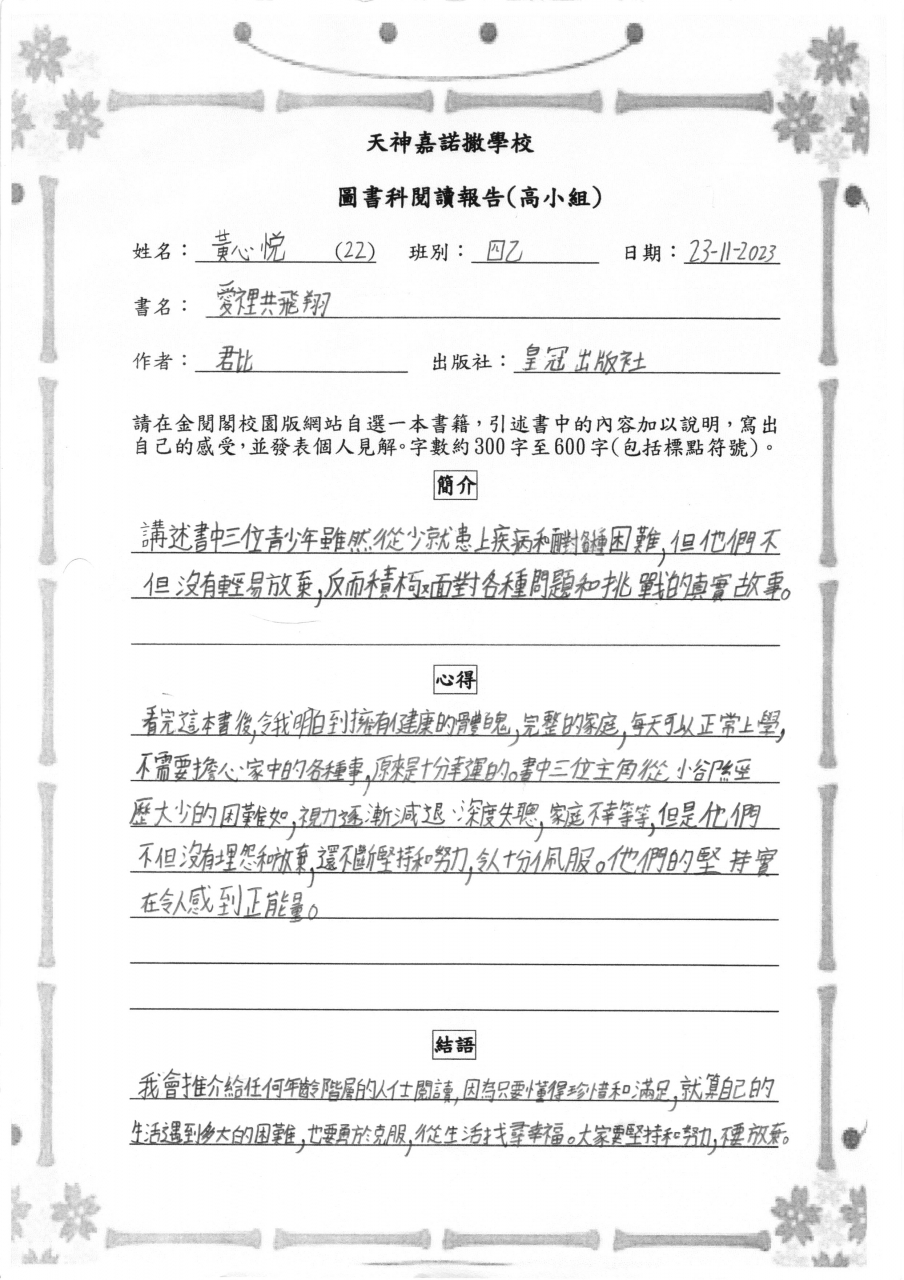 天神嘉諾撒學校
圖書科閱讀報告(高小組)
姓名： 黃心悅 (22) 班別： 四乙 日期： 23-11-2023
書名： 愛裡共飛翔
作者： 君比 出版社： 皇冠出版社
請在金閱閣校園版網站自選一本書籍，引述書中的內容加以說明，寫出
自己的感受，並發表個人見解。字數約300字至600字(包括標點符號)。
簡介
講述書中三位青少年雖然從少就患上疾病和面對各種困難，但他們不
但沒有輕易放棄，反而積極面對各種問題和挑戰的真實故事。
心得
看完這本書後，令我明白到擁有健康的體魄，完整的家庭，每天可以正常上學，
不需要擔心家中的各種事，原來是十分幸運的。書中三位主角從小卻經
歷大少的困難如，視力逐漸減退、深度失聰，家庭不幸等等，但是他們
不但沒有埋怨和放棄，還不斷堅持和努力，令人十分佩服。他們的堅持實
在令人感到正能量。
結語
我會推介給任何年齡階層的人仕閱讀，因為只要懂得珍惜和滿足，就算自己的
生活遇到多大的困難，也要勇於克服，從生活找尋幸福。大家要堅持和努力，不要放棄。